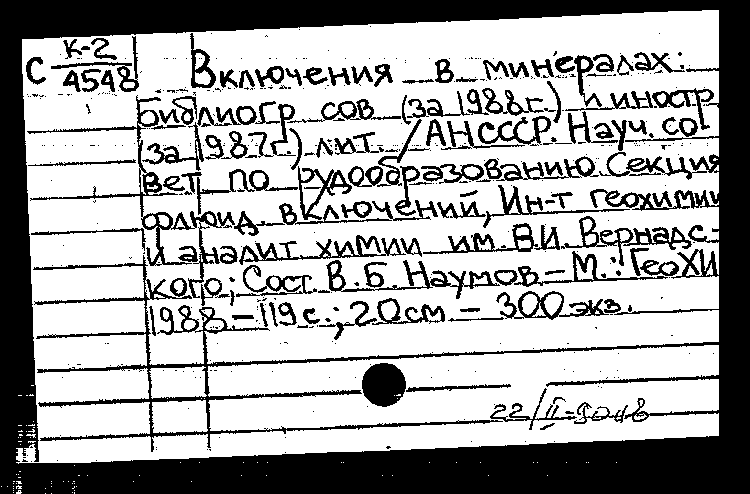 К-2
С 4548
Включения в минералах:
библиогр сов (за 1988г.) и иностр
(за 1987г.) лит. / АНСССР. Науч. со-
вет по рудообразованию. Секция
флюид. включений, Ин-т геохимии
и аналит. химии им. В.И. Вернадс-
кого; Сост. В.Б. Наумов – М.: ГеоХИ
1988. – 119 с.; 20 см. – 300 экз.
22/II-90